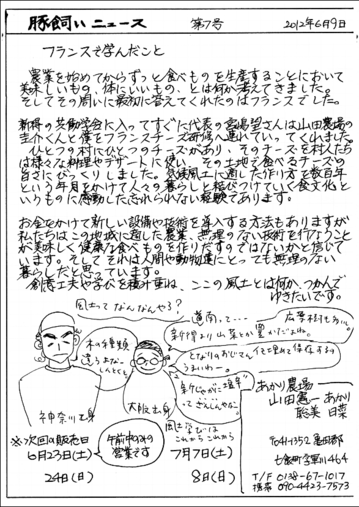 豚飼いニュース 第7号 2012年6月9日
フランスで学んだこと
農業を始めてからずっと食べものを生産することにおいて
美味しいもの、体にいいもの、とは何か考えてきました。
そしてその問いに最初に答えてくれたのはフランスでした。
新得の共働学舎に入ってすぐに代表の宮嶋望さんは山田農場の
圭介くんと僕をフランスチーズ研修へ連れていってくれました。
ひとつの村でひとつのチーズがあり、そのチーズを村人たち
は様々な料理やデザートに使い、その土地で食べるチーズの
旨さにびっくりしました。気候風土に適した作り方を数百年
という年月をかけて人々の暮らしと結びつけていく食文化と
いうものに感動した忘れられない経験であります。
お金をかけて新しい設備や技術を導入する方法もありますが
私たちはこの地域に適した農業、無理のない技術を行なうこと
が美味しく健康な食べものを作りだすのではないかと信じて
います。そしてそれは人間や動物達にとっても無理のない
暮らしだと思っています。
創意工夫や学びを積み重ね、ここの風土とは何か、つかんで
ゆきたいです。
風土ってなんなんやろ?
道南って・・・・
広葉樹も多い。
新得より山菜とか豊かだよね。
木の種類
違うよなー
となりのおじさん
うまいわー。
神奈川出身
大阪出身
風土の学びは
これからこれから
あかり農場
山田憲一 あかり
聡美 日菜
〒041-1352 亀田郡
七飯町字軍川464
T/F 0138-67-1017
携帯 090-4423-7573
※次回の販売日
6月23日(土)
24日(日)
午前中のみの
営業です
7月7日(土)
8日(日)